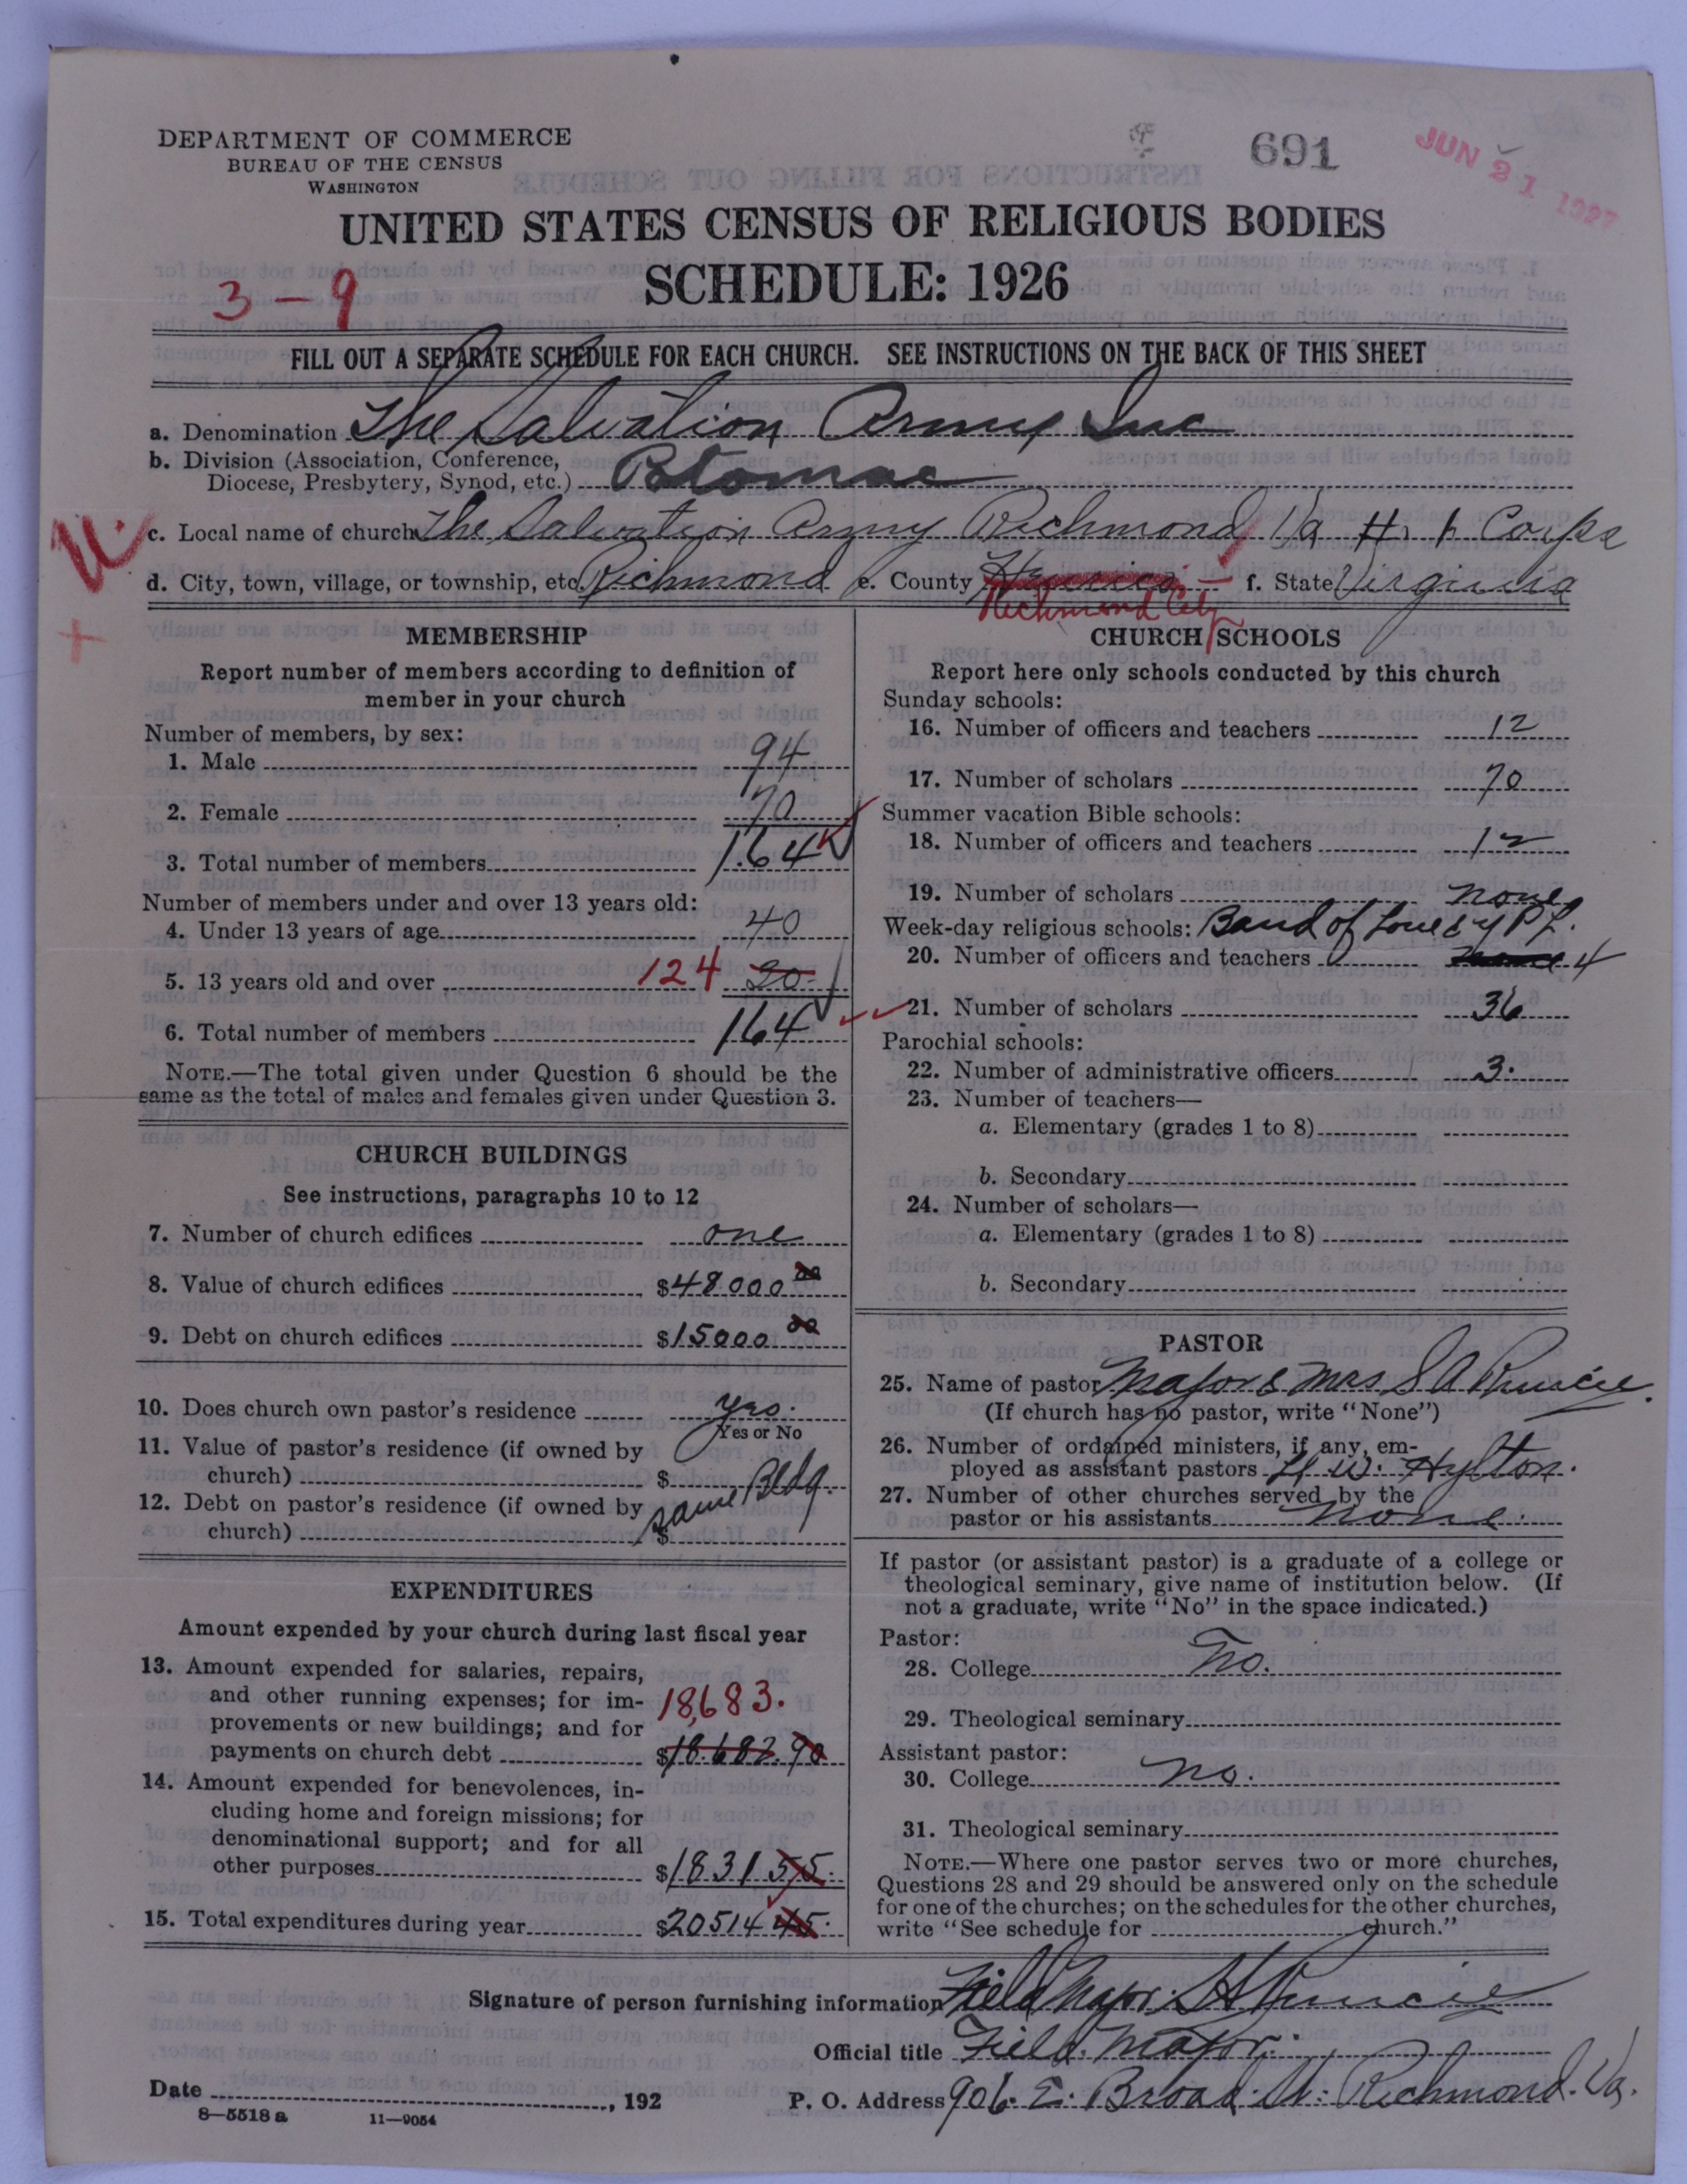 DEPARTMENT OF COMMERCE
BUREAU OF THE CENSUS
WASHINGTON
691
JUN 21 1927
UNITED STATES CENSUS OF RELIGIOUS BODIES
SCHEDULE: 1926
3-9
FILL OUT A SEPARATE SCHEDULE FOR EACH CHURCH. SEE INSTRUCTIONS ON THE BACK OF THIS SHEET
a. Denomination The Salvation Army Inc
b. Division (Association, Conference,
Diocese, Presbytery, Synod, etc.) Potomac
c. Local name of church The Salvation Army Richmond Va # 1 Corps
d. City, town, village, or township, etc. Richmond e. County Henrico f. State Virginia
Richmond City
MEMBERSHIP
Report number of members according to definition of
member in your church
Number of members, by sex:
1. Male 94
2. Female 70
3. Total number of members 164
Number of members under and over 13 years old:
4. Under 13 years of age 40
5. 13 years old and over 124
6. Total number of members 164
NOTE.—The total given under Question 6 should be the
same as the total of males and females given under Question 3.
CHURCH BUILDINGS
See instructions, paragraphs 10 to 12
7. Number of church edifices one
8. Value of church edifices $48000 00
9. Debt on church edifices $15000 00
10. Does church own pastor's residence yes.
Yes or No
11. Value of pastor's residence (if owned by
church) $
12. Debt on pastor's residence (if owned by
church) $ same Bldg.
EXPENDITURES
Amount expended by your church during last fiscal year
13. Amount expended for salaries, repairs,
and other running expenses; for im-
provements or new buildings; and for
payments on church debt $18.682.90
18,683.
14. Amount expended for benevolences, in-
cluding home and foreign missions; for
denominational support; and for all
other purposes $1831 55.
15. Total expenditures during year $20514 45.
CHURCH SCHOOLS
Report here only schools conducted by this church
Sunday schools:
16. Number of officers and teachers 12
17. Number of scholars 70
Summer vacation Bible schools:
18. Number of officers and teachers 12
19. Number of scholars none
Week-day religious schools: Band of Love & Y P L.
20. Number of officers and teachers 4
21. Number of scholars 36
Parochial schools:
22. Number of administrative officers 3.
23. Number of teachers—
a. Elementary (grades 1 to 8)
b. Secondary
24. Number of scholars—
a. Elementary (grades 1 to 8)
b. Secondary
PASTOR
25. Name of pastor Major & Mrs S A
(If church has no pastor, write "None")
26. Number of ordained ministers, if any, em-
ployed as assistant pastors W. Hylton.
27. Number of other churches served by the
pastor or his assistants none.
If pastor (or assistant pastor) is a graduate of a college or
theological seminary, give name of institution below. (If
not a graduate, write "No" in the space indicated.)
Pastor:
28. College No.
29. Theological seminary
Assistant pastor:
30. College no.
31. Theological seminary
NOTE.—Where one pastor serves two or more churches,
Questions 28 and 29 should be answered only on the schedule
for one of the churches; on the schedules for the other churches,
write "See schedule for church."
Signature of person furnishing information Field Major. S A
Official title Field. Major.
Date , 192
P. O. Address 906. E. Broad. St: Richmond. Va.
8—5518 a
11—9054